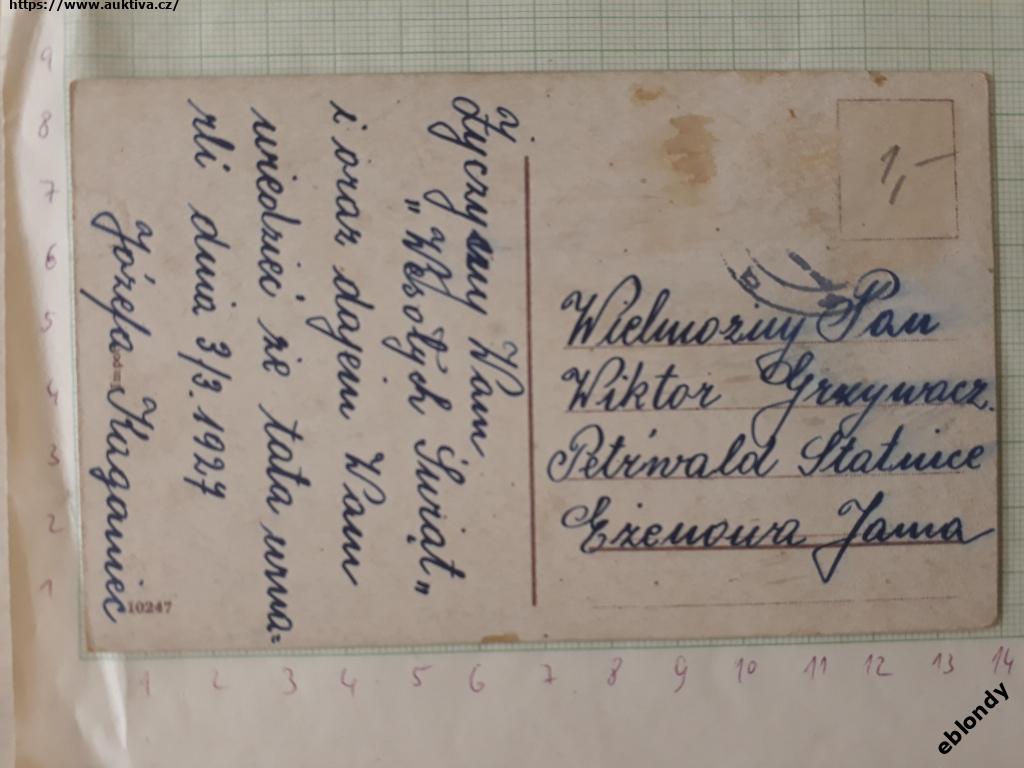 https://www.auktiva.cz/
Życzymy Wam
„Wesołych Świąt„
i oraz dajem Wam
wiedzieć że tata uma=
rli dnia 3/3. 1927
Józefa Kuganiec
10247
1,-
Wielmożny Pan
Wiktor Grzywacz.
Petrwald Statnice
Eżenowa Jama
9
8
7
6
5
4
3
2
1
1 2 3 4 5 6 7 8 9 10 11 12 13 14
eblondy